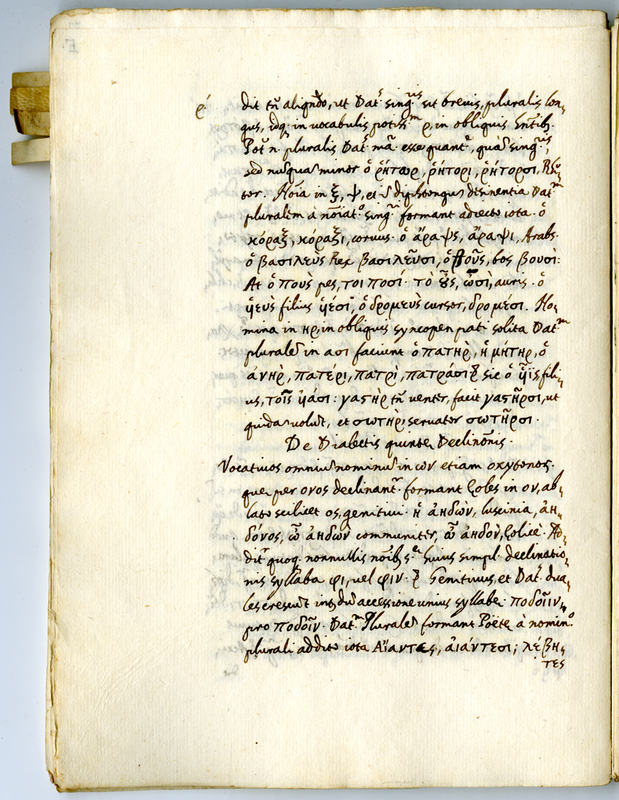 dit tñ aliqñdo, ut Dat.s sing.us sit brevis, pluralis lon-
ρ́
gus, idq; in vocabulis potiss.m ρ in obliquis hñtib;
Pot.t n pluralis Dat. esse quant.
sed nusquã minor ὁ ῥήτωρ, ῥήτορι, ῥήτορσι, Rhe-
tor. Noĩa in ξ, ψ, et s diphtongus Dat.m
pluralẽm a nõiat.o sing.ri formant adiecto iota. ὁ
κόραξ, κόραξι, corvus. ὁ ἄραψς, ἄραψι, Arabs.
ὁ βασιλεὺς Rex βασιλεῦσι, ὁ βοῦς, bos βουσι.
At ὁ ποὺς pes, τοι ποσί. τὸ οὖς, ὠσὶ, auris. ὁ
ὑεὺς filius ὑέσι, ὁ δρομεὺς cursor, δρομέσι. No-
mina in ηρ in obliquis syncopen pati solita Dat.m
pluralẽ in ασι faciunt ὁ πατὴρ, ἡ μήτηρ, ὁ
ἀνὴρ, πατέρι, πατρὶ, πατράσι sic ὁ ὑῒς fili-
us, τοῖς ὑάσι. γαστὴρ tñ venter, facit γαστῆρσι, ut
quidã volũt, et σωτὴρ servator σωτῆρσι.
De Dialectis quintæ Declinõnis.
Vocativos omniũ nominũ in ων etiam oxytonos
quæ per ονος declinant.r formant Æoles in ον, ab-
lato scilicet ος, genitivi. ἡ ἀηδὼν, luscinia, ἀη-
δόνος, ὦ ἀηδὼν communiter, ὦ ἀηδὸν, Æolicè. Ad-
dit.r quoq; nonnullis nõib; huius simpl. declinatio-
nis syllaba φι, vel φιν. Genitivus, et Dat. dua-
les crescũt accessione unius syllabæ ποδοῖιν,
pro ποδοῖν. Dat.m Pluralẽ formant Poëtæ a nomin.o
plurali addito iota Αἴαντες, αἰάντεσι; λέβη-
τες